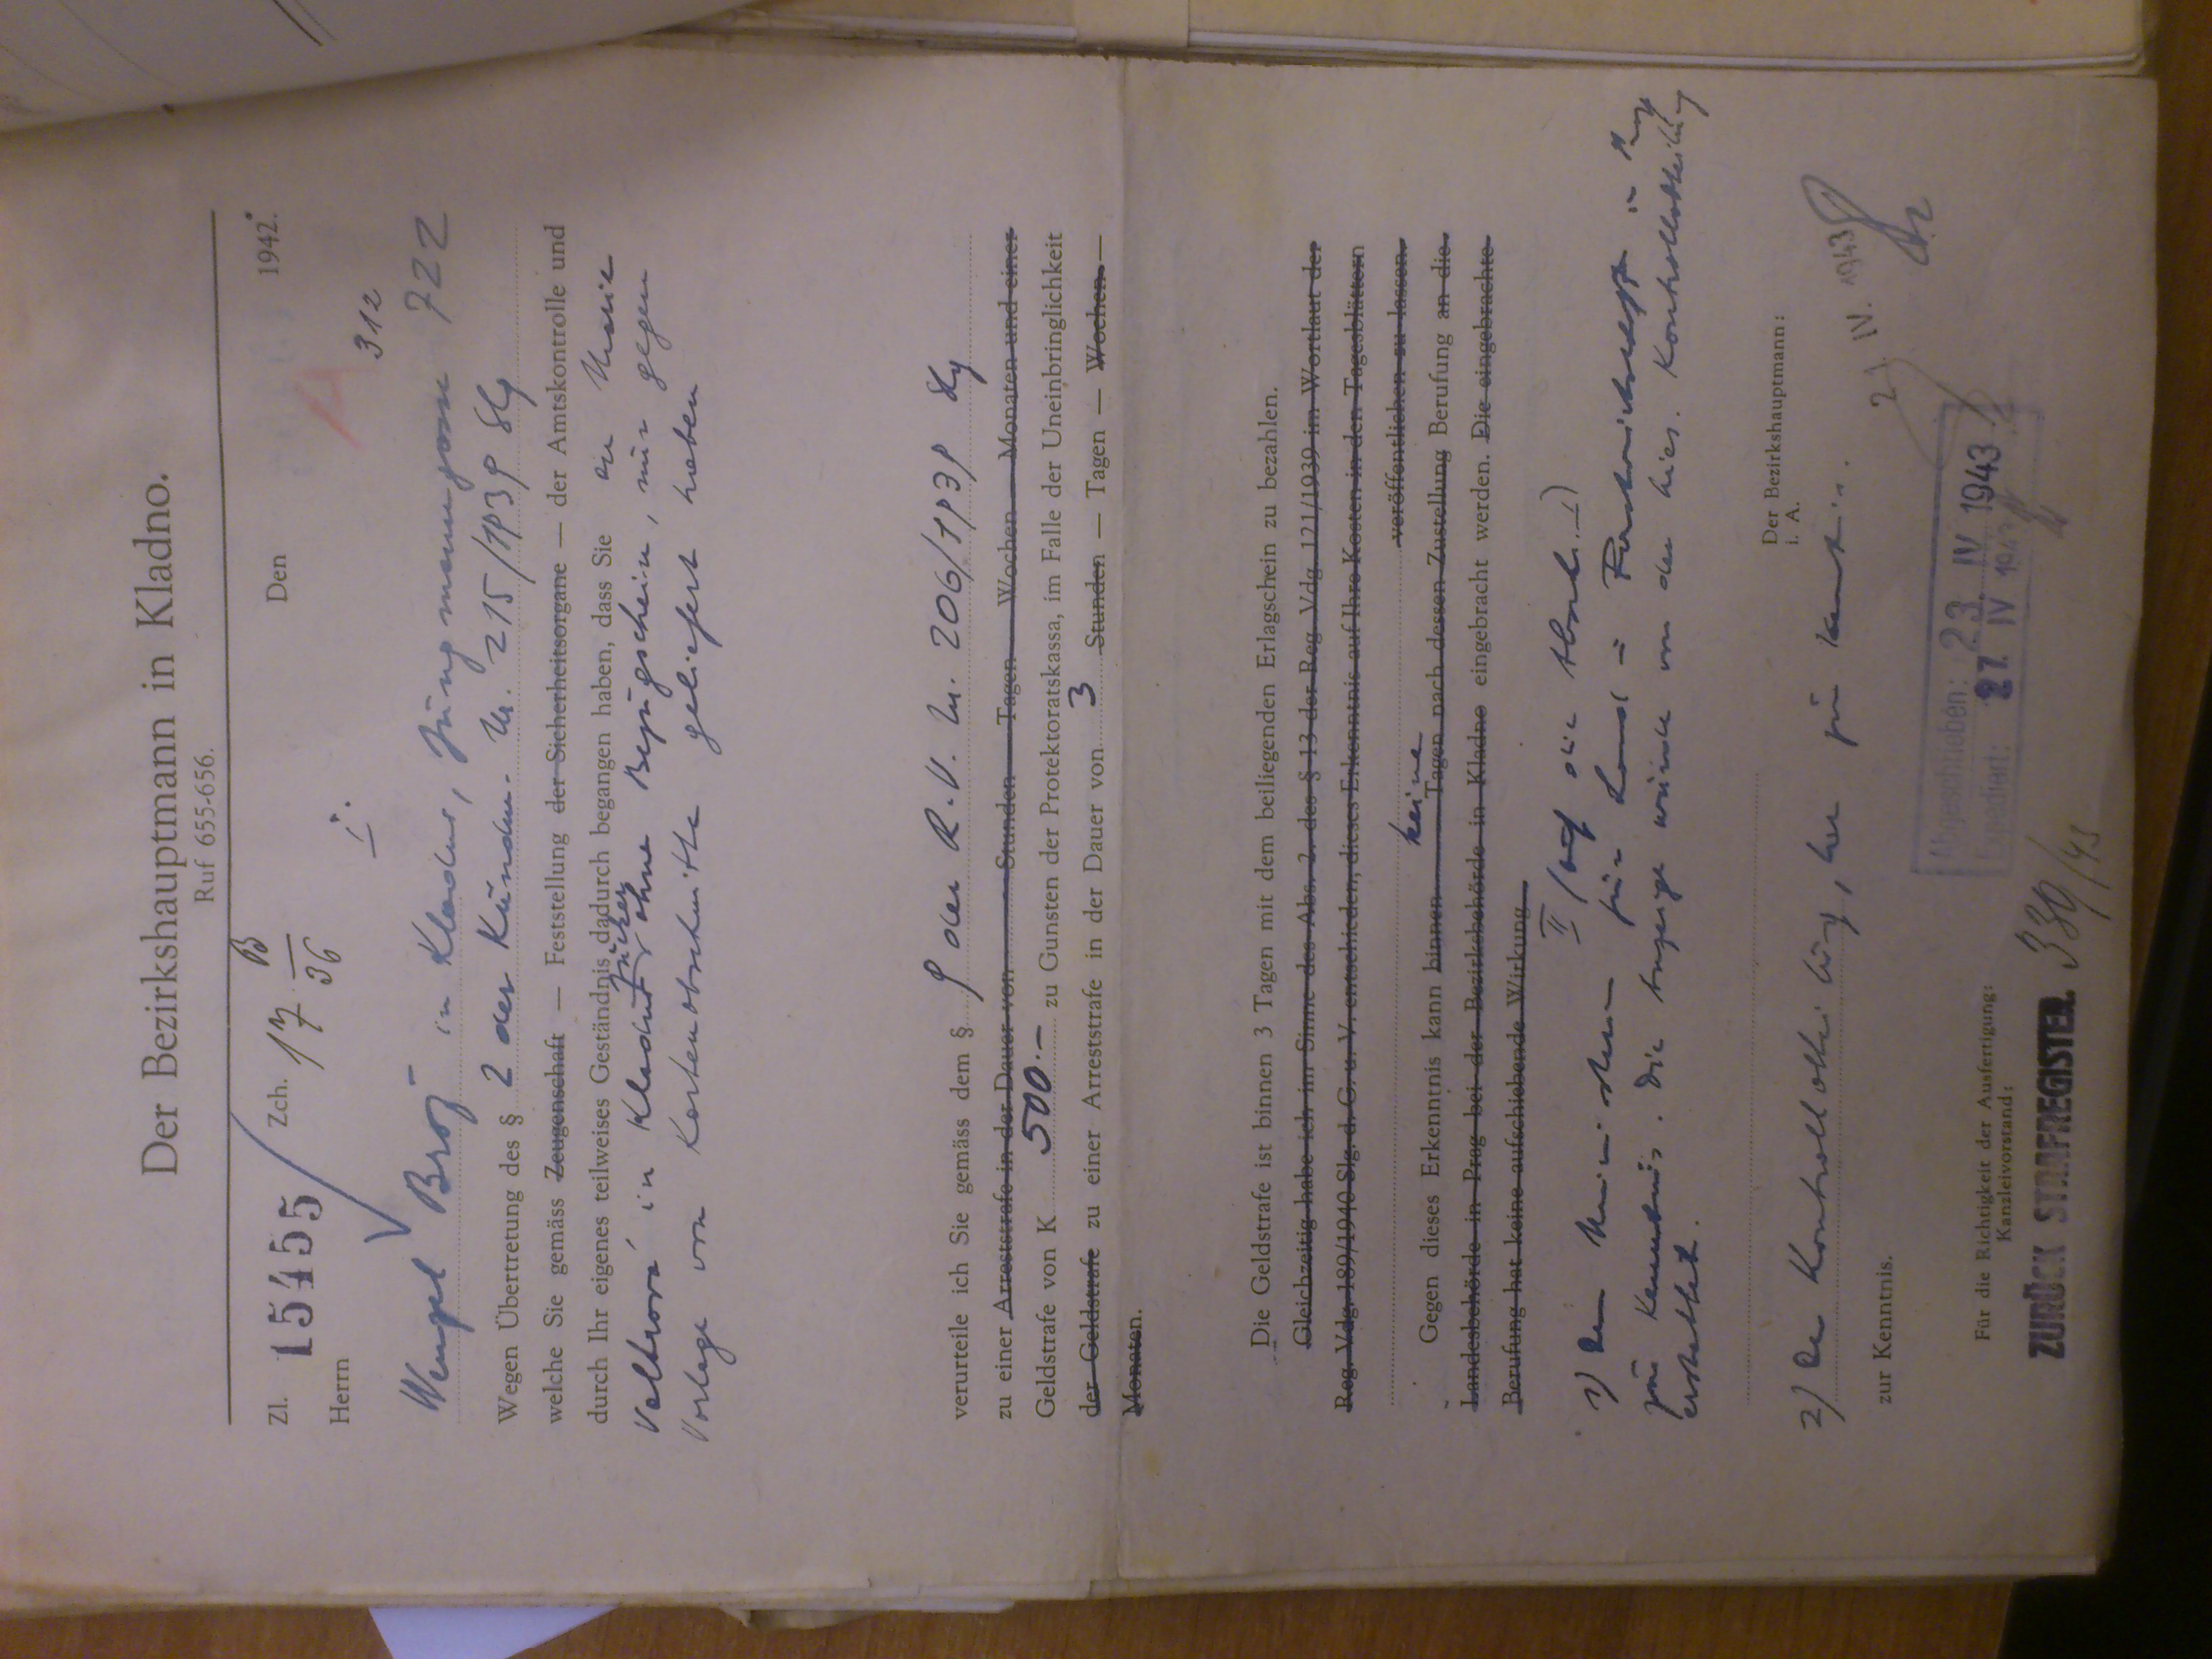 Der Bezirkshauptmann in Kladno.
Ruf 655-656.
Zl. 15455 Zch. 17 B/36 Den 1942.
Herrn
I.
312
Wenzel Brož in Kladno, Jungmanngasse 722
Wegen Übertretung des § 2 der Kundm. Nr. 215/1939 Slg
welche Sie gemäss Zeugenschaft — Feststellung der Sicherheitsorgane — der Amtskontrolle und
durch Ihr eigenes teilweises Geständnis dadurch begangen haben, dass Sie an Marie
Zucker
Valtrová in Kladno ohne Bezugschein, nur gegen
Vorlage von Kartenabschnitte geliefert haben
verurteile ich Sie gemäss dem § 9 der R.V. Nr. 206/1939 Slg
zu einer Arreststrafe in der Dauer von Stunden Tagen Wochen Monaten und einer
Geldstrafe von K 500.— zu Gunsten der Protektoratskassa, im Falle der Uneinbringlichkeit
der Geldstrafe zu einer Arreststrafe in der Dauer von 3 Stunden — Tagen — Wochen —
Monaten.
Die Geldstrafe ist binnen 3 Tagen mit dem beiliegenden Erlagschein zu bezahlen.
Gleichzeitig habe ich im Sinne des Abs. 2. des § 13 der Reg. Vdg. 121/1939 im Wortlaut der
Reg. Vdg. 189/1940 Slg. d. G. u. V. entschieden, dieses Erkenntnis auf Ihre Kosten in den Tagesblättern
veröffentlichen zu lassen.
keine
Gegen dieses Erkenntnis kann binnen Tagen nach dessen Zustellung Berufung an die
Landesbehörde in Prag bei der Bezirksbehörde in Kladno eingebracht werden. Die eingebrachte
Berufung hat keine aufschiebende Wirkung
II (auf die Abschr. I)
1) Dem Ministerium für Land u Forstwirtschaft in Prag
zur Kenntnis. Die Anzeige wurde von der hies. Kontrollabteilung
erstattet.
Der Bezirkshauptmann:
i. A.
2) Der Kontrollabteilung, hier zur Kenntnis.
21. IV. 1943
zur Kenntnis.
Abgeschrieben: 23. IV 1943
Expediert: 27. IV 1943
Für die Richtigkeit der Ausfertigung:
Kanzleivorstand:
ZURÜCK STRAFREGISTER. 339/43